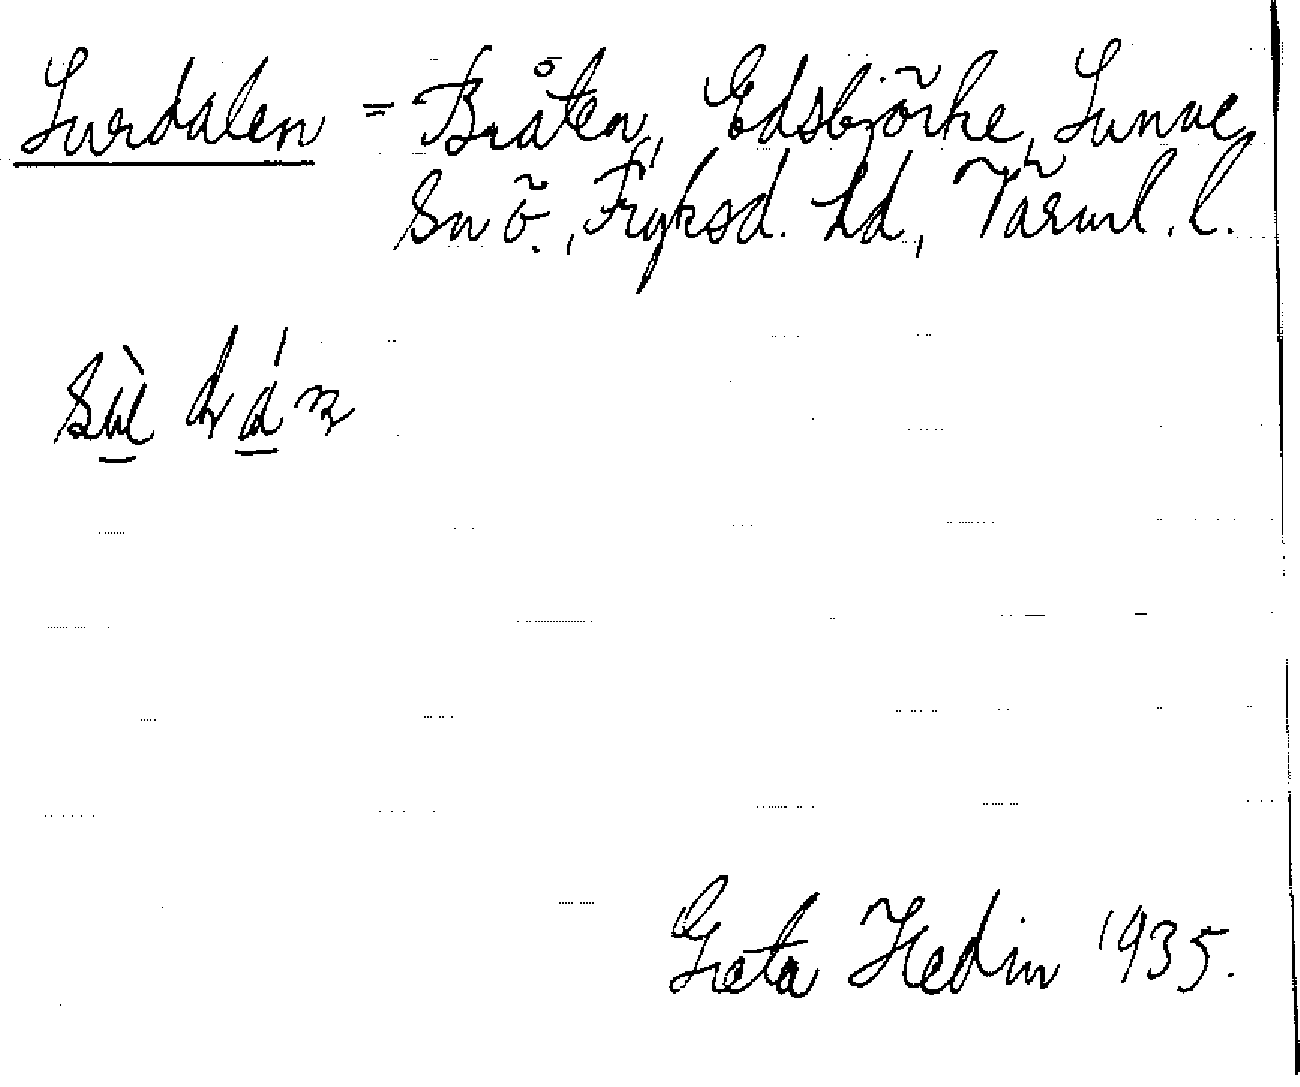 Surdalen = Bråten, Edsbjörke, Sunne
sn ö., Fryksd. hd, Värml. l.
Greta Hedin 1935.